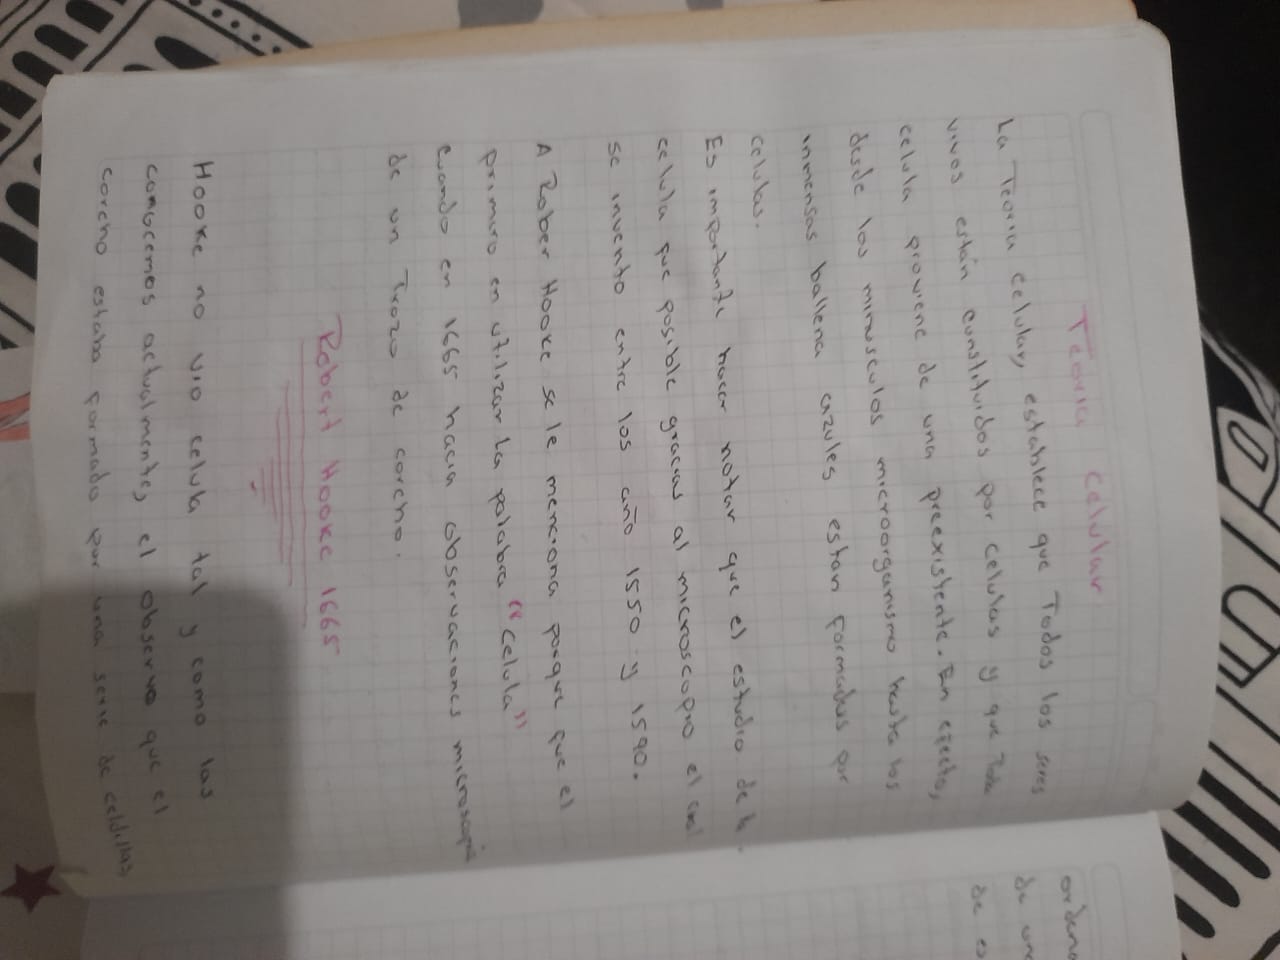 Teoria Celular
La Teoria celular, establece que Todos los seres
vivos están constituidos por celulas y que Toda
celula proviene de una preexistente. En efecto,
desde los minusculos microorganismo hasta los
inmensas ballena azules estan formados por
celulas.
Es importante hacer notar que el estudio de la
celula que posible gracias al microscopio el cual
se invento entre los año 1550 y 1590.
A Rober Hooke se le menciona porque que el
primero en utilizar La palabra "celula"
cuando en 1665 hacia observaciones
de un Trozo de corcho.
Robert Hooke 1665
Hooke no vio celula tal y como las
conocemos actualmente, el observo que el
corcho estaba formado por una serie de celdillas,
de una